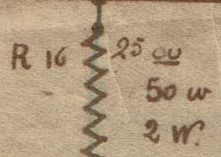 R 16
25 00
50 w
2 W.